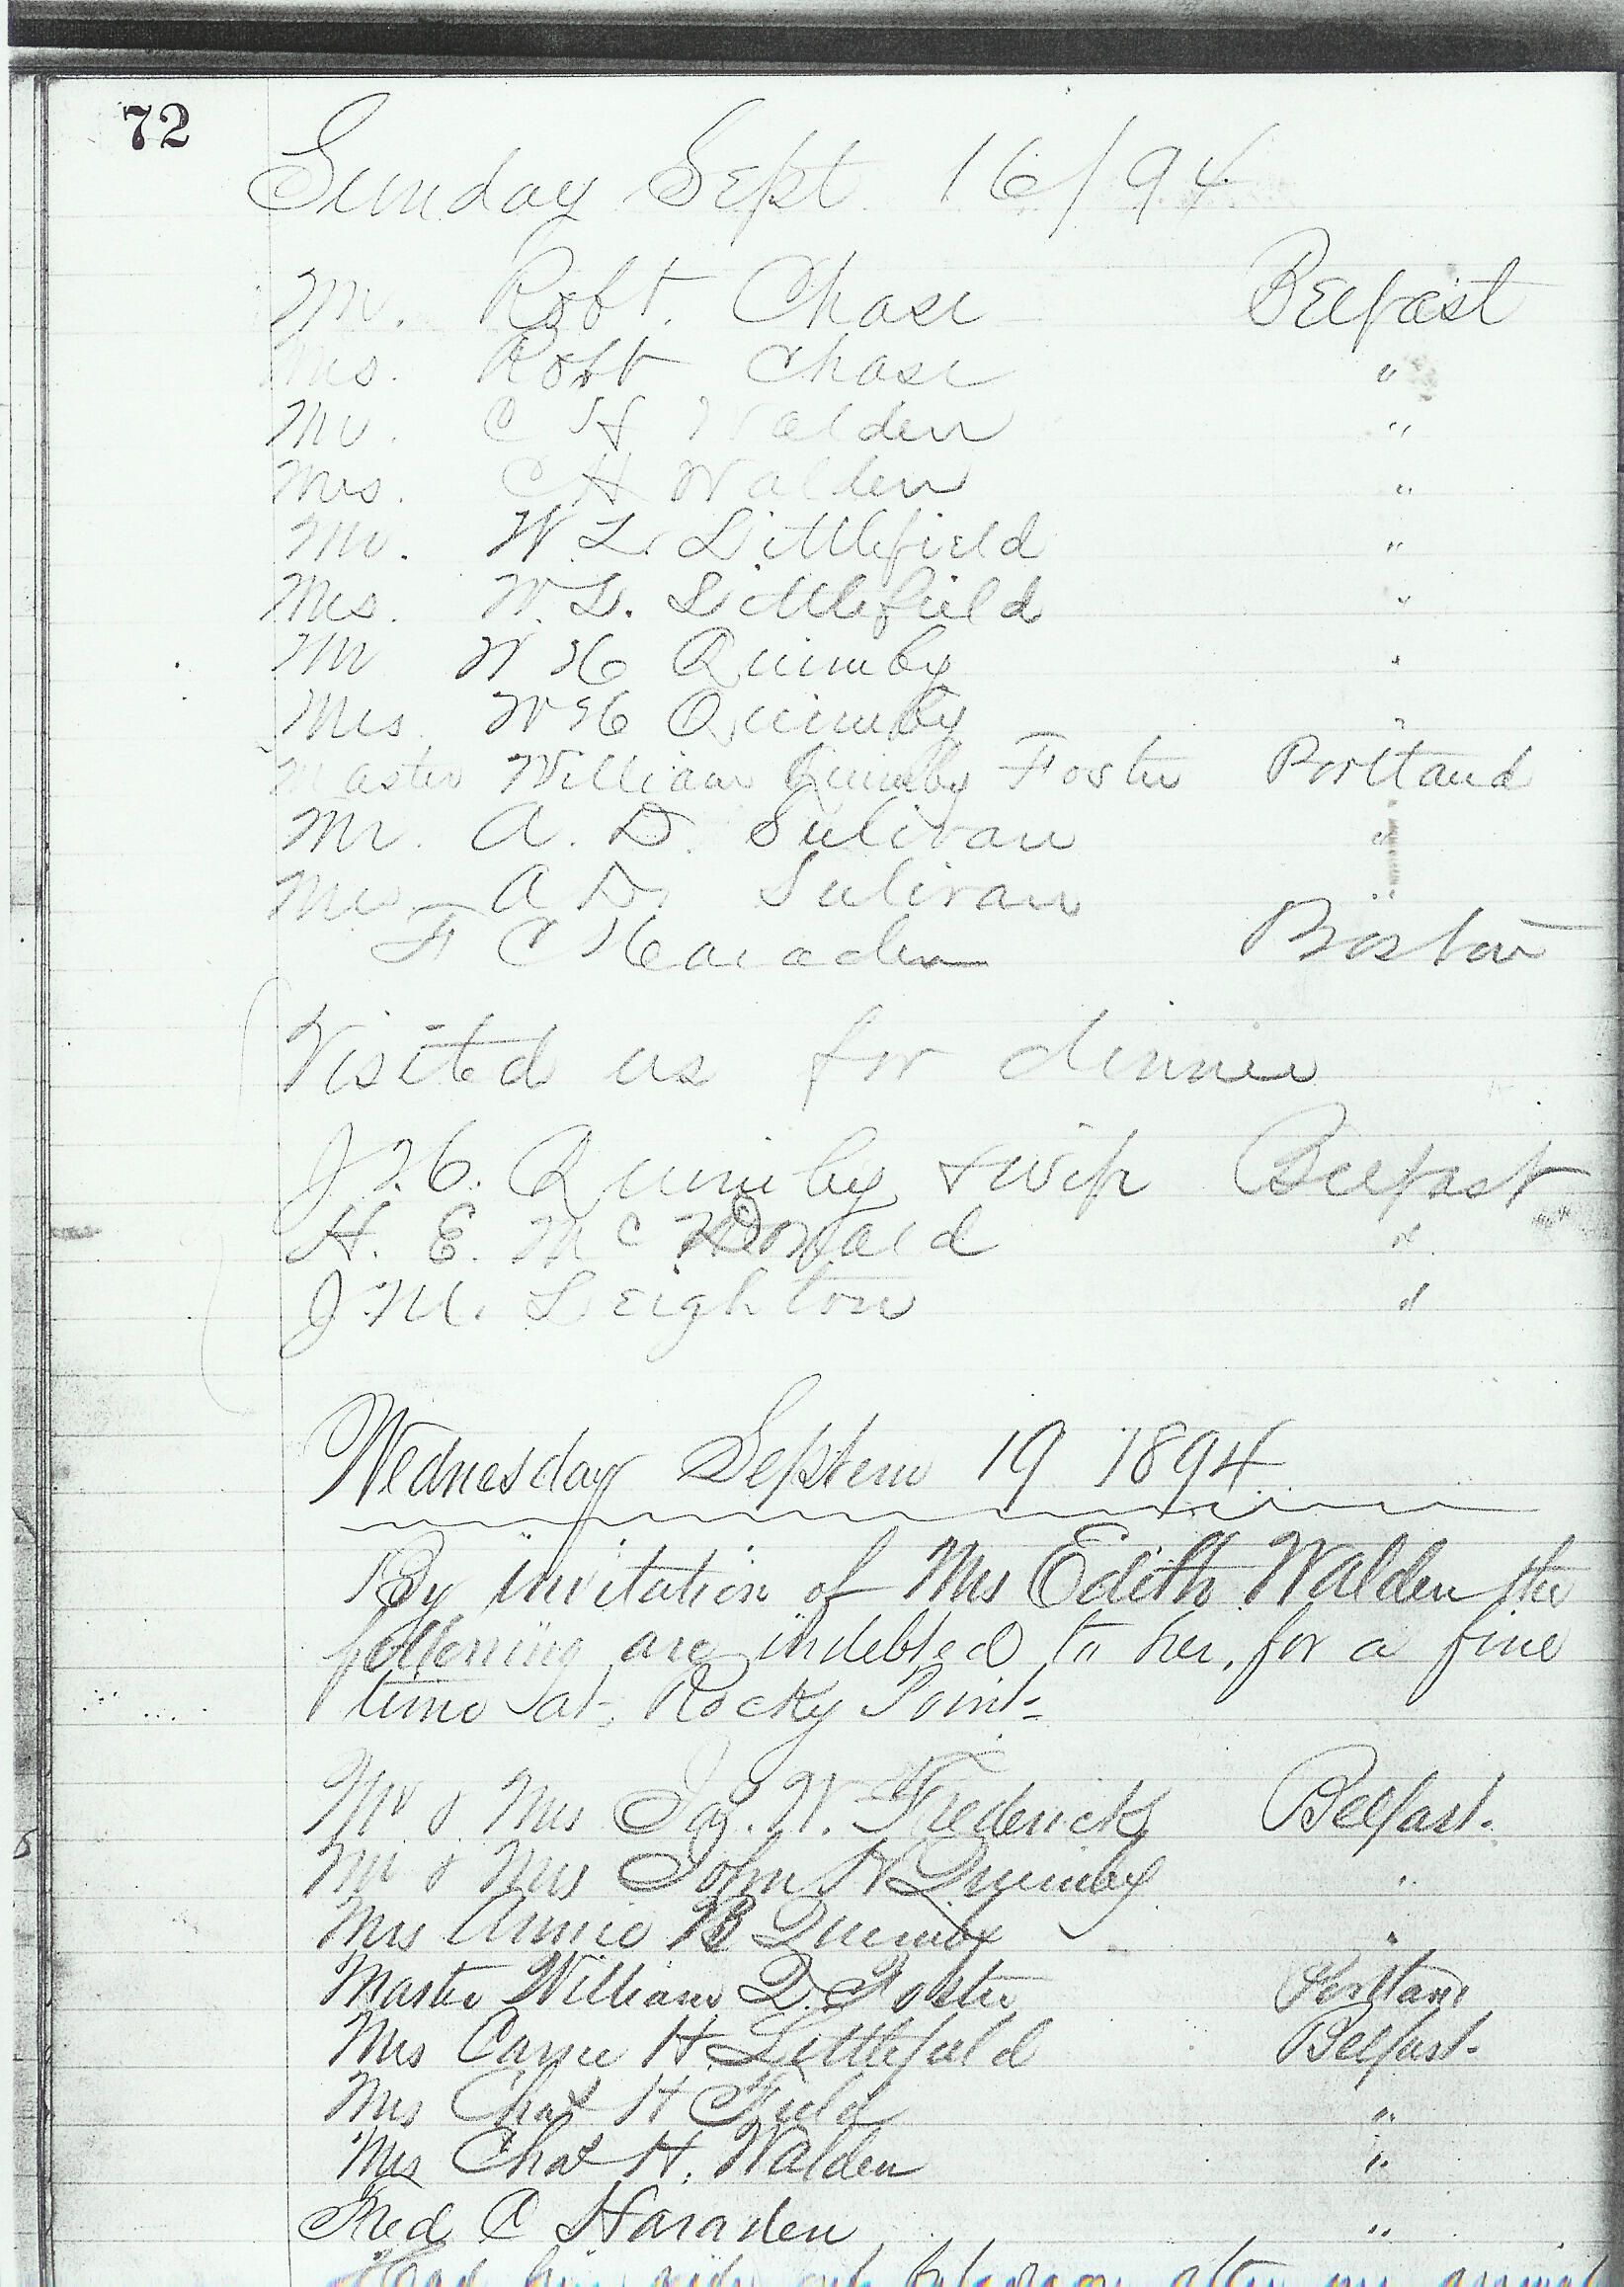 72
Sunday Sept. 16/94
Mr. Robt. Chase Belfast
Mrs. Robt Chase "
Mr. C H Walden "
Mrs. C H Walden "
Mr. W. L. Littlefield "
Mrs. W. L. Littlefield "
Mr W H Quimby "
Mrs W H Quimby "
Master William Quimby Foster Portland
Mr. A. D. Sulivan "
Mrs A D. Sulivan "
F C Haraden Boston
Visited us for dinner
J. H. Quimby & wife Belfast
H. E. McDonald "
J. M. Leighton "
Wednesday Septem 19 1894
By invitation of Mrs Edith Walden the
following are indebted to her, for a fine
time at Rocky Point-
Mr & Mrs Jas. W. Frederick Belfast.
Mr & Mrs John H Quimby "
Mrs Annie B Quimby "
Master William Q. Foster Portland
Mrs Carrie H Littlefield Belfast.
Mrs Chas H Field "
Mrs Chas H. Walden "
Fred C Haraden "
after our arrival